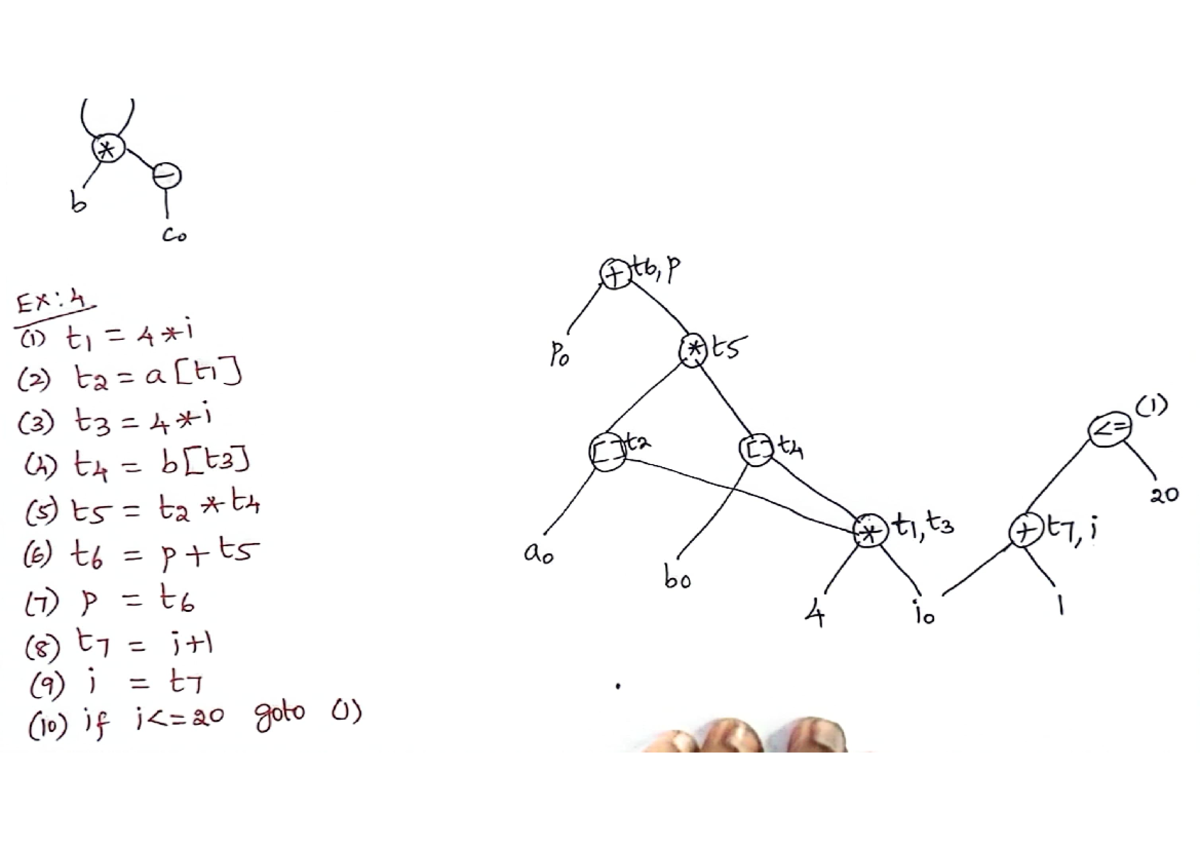 *
b
−
c₀
EX:4
(1) t₁ = 4*i
(2) t₂ = a[t₁]
(3) t₃ = 4*i
(4) t₄ = b[t₃]
(5) t₅ = t₂*t₄
(6) t₆ = p+t₅
(7) p = t₆
(8) t₇ = i+1
(9) i = t₇
(10) if i<=20 goto (1)
+ t₆,p
p₀
* t₅
[] t₂
[] t₄
a₀
b₀
* t₁,t₃
4
i₀
<= (1)
20
+ t₇,i
1